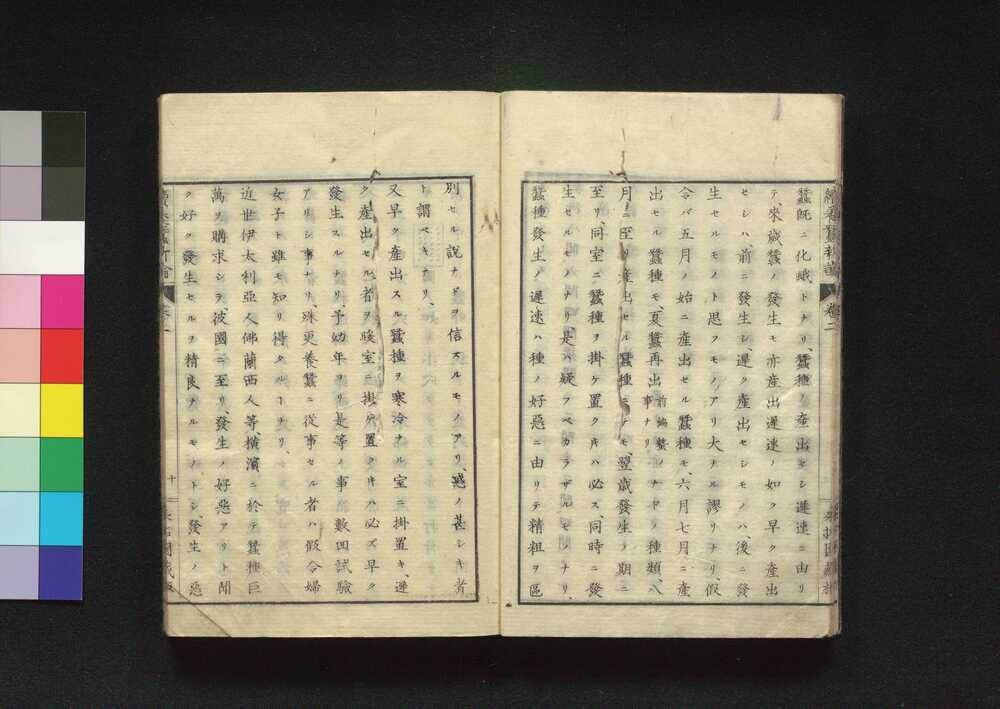 蠶眠ニ化蛾トナリ、蠶種ノ產出セシ遲速ニ由リ
テ、來歳蠶ノ發生モ亦產出遲速ノ如ク早ク產出
セシハ、前ニ發生シ、遲ク產出セシモノハ、後ニ發
生セルモノト思フモノアリ大ナル謬リナリ、假
令バ五月ノ始ニ產出セル蠶種モ、六月七月ニ產
出セル蠶種モ、夏蠶再出前編蠶ノ事ナリナドノ種類、八
月ノニ至リ產出セル蠶種ニテモ、翌歳發生ノ期ニ
至リ同室ニ蠶種ヲ掛ケ置クキハ必ス、同時ニ發
生セルモノナリ是ハ疑フベカラザルモノナリ、
蠶種發生ノ遲速ハ種ノ好惡ニ由リテ精粗ヲ區
別セル說ナドヲ信スルモノアリ、惑ノ甚シキ者
ト謂ベキナリ、
又早ク產出スル蠶種ヲ寒冷ナル室ニ掛置キ、遲
ク產出セル者ヲ暖室ニ掛ケ置クキハ必ズ早ク
發生スルナリ、予幼年ヨリ是等ノ事ハ數四試驗
アリシ事ナリ、殊更養蠶ニ從事セル者ハ假令婦
女子ト雖モ知リ得タルヿナリ、
近世伊太利亞人佛蘭西人等、橫濱ニ於テ蠶種巨
萬ヲ購求シテ、彼國ニ至リ、發生ノ好惡アリト聞
ク好ク發生セルヲ精良ナルモノトシ、發生ノ惡
十